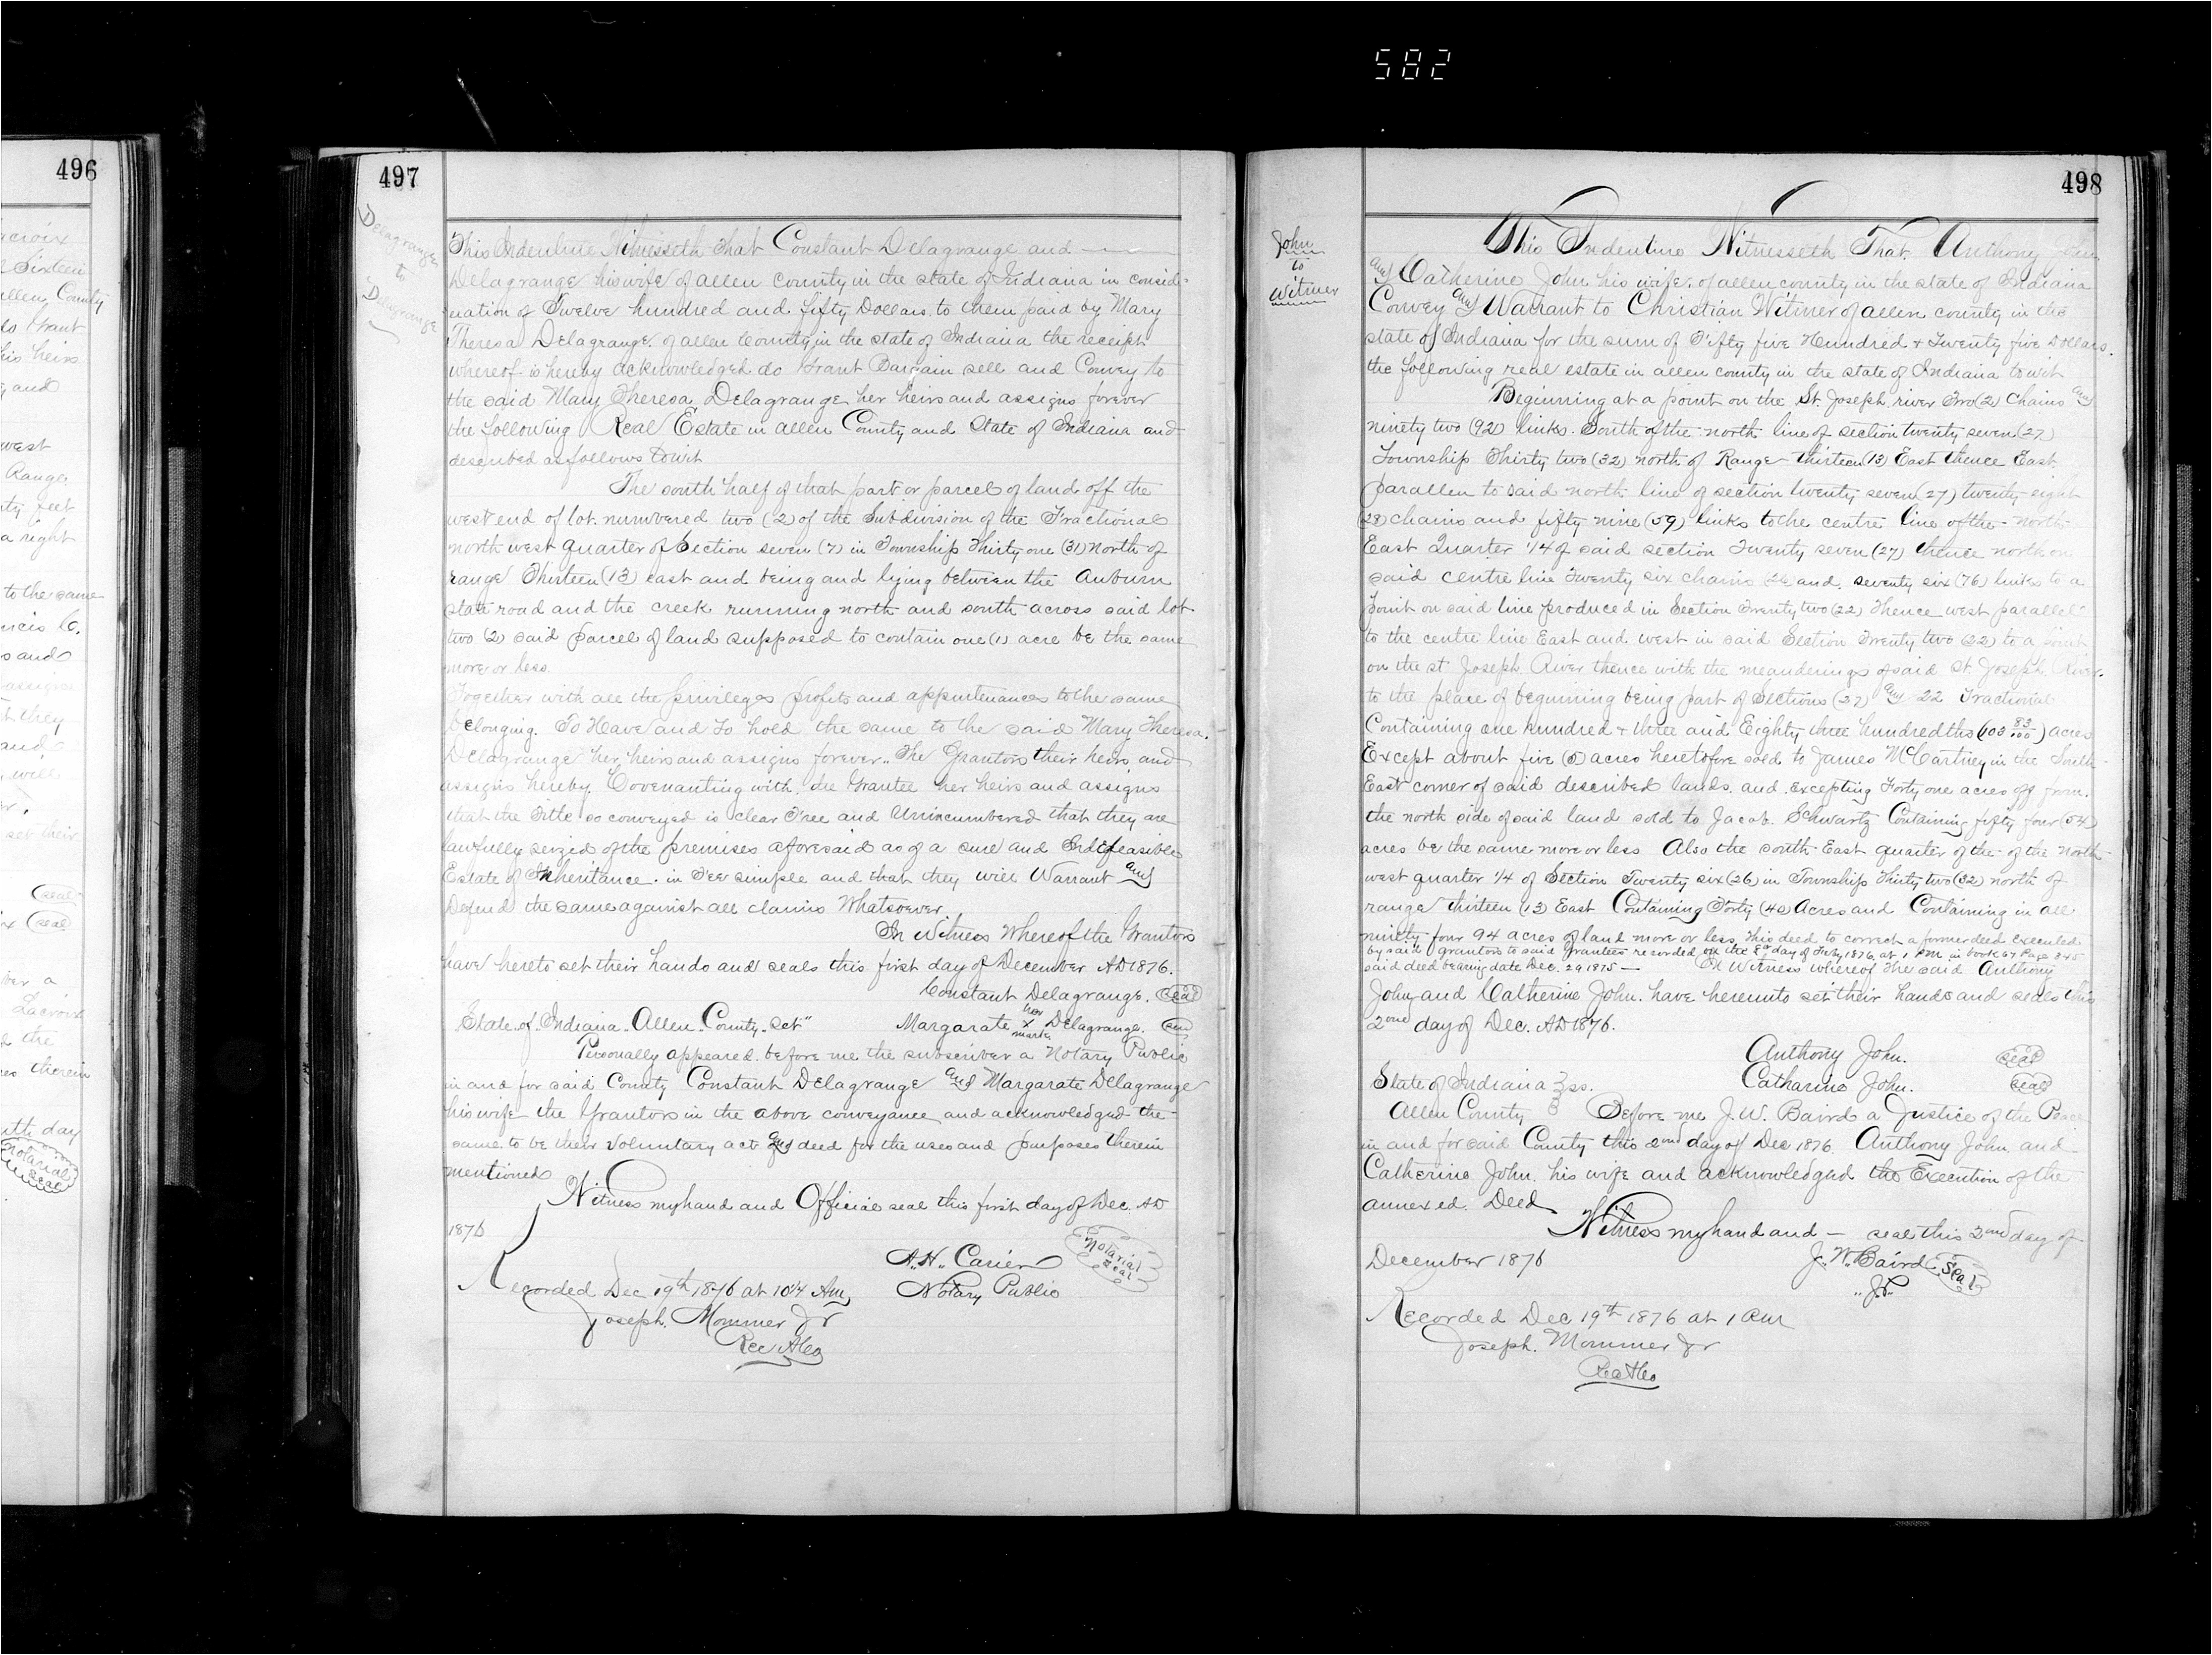 582
496
acroix
Sixteen
allen County
Grant
his heirs
and
west
Range
feet
a right
to the same
ncis C.
s and
assigns
they
and
will
set their
(seal)
x (seal)
ver a
Lacroix
d the
therein
ith day
Notarial
Seal
497
Delagrange
to
Delagrange
This Indenture Witnesseth That Constant Delagrange and —
Delagrange his wife of allen county in the state of Indiana in conside-
ration of Twelve hundred and fifty Dollars to them paid by Mary
Theresa Delagrange of allen County in the state of Indiana the receipt
whereof is hereby acknowledged do Grant Bargain sell and Convey to
the said Mary Theresa Delagrange her heirs and assigns forever
the following Real Estate in allen County and State of Indiana and
described as follows towit
The south half of that part or parcel of land off the
west end of lot numbered two (2) of the Subdivision of the Fractional
north west quarter of Section seven (7) in Township Thirty one (31) North of
range Thirteen (13) east and being and lying between the Auburn
state road and the creek running north and south across said lot
two (2) said parcel of land supposed to contain one (1) acre be the same
more or less
Together with all the privileges profits and appurtenances to the same
belonging. To Have and to hold the same to the said Mary Theresa
Delagrange her heirs and assigns forever. The Grantors their heirs and
assigns hereby Covenanting with the Grantee her heirs and assigns
that the Title so conveyed is clear Free and Unincumbered that they are
lawfully seized of the premises aforesaid as of a sure and Indefeasible
Estate of Inheritance in Fee simple and that they will Warrant and
Defend the same against all claims Whatsoever
In Witness Whereof the Grantors
have hereto set their hands and seals this first day of December AD 1876.
Constant Delagrange. (seal)
State of Indiana Allen County Sct" Margarate her x mark Delagrange. (seal)
Personally appeared before me the subscriber a Notary Public
in and for said County Constant Delagrange and Margarate Delagrange
his wife the Grantors in the above conveyance and acknowledged the
same to be their voluntary act and deed for the uses and purposes therein
mentioned
Witness my hand and Official seal this first day of Dec. AD
1876
A. H. Carier Notarial Seal
Recorded Dec 19th 1876 at 10¼ Am Notary Public
Joseph Mommer Jr
Rec A Co
498
John
to
Witmer
This Indenture Witnesseth That Anthony John
and Catherine John his wife of allen county in the state of Indiana
Convey and Warrant to Christian Witmer of allen county in the
state of Indiana for the sum of Fifty five Hundred & Twenty five Dollars.
the following real estate in allen county in the state of Indiana towit
Beginning at a point on the St. Joseph river Two (2) Chains and
ninety two (92) links South of the north line of section twenty seven (27)
Township Thirty two (32) north of Range thirteen (13) East thence East
parallen to said north line of section twenty seven (27) twenty eight
(28) chains and fifty nine (59) links to the centre line of the north
East Quarter 1/4 of said section Twenty seven (27) thence north on
said centre line Twenty six chains (26) and seventy six (76) links to a
point on said line produced in Section Twenty two (22) Thence west parallel
to the centre line East and west in said Section Twenty two (22) to a point
on the st Joseph River thence with the meanderings of said St. Joseph River
to the place of beginning being part of Sections (27) and 22 Fractional
Containing one hundred & three and Eighty three hundredths (103 83/100) acres
Except about five (5) acres heretofore sold to James McCartney in the South
East corner of said described lands and excepting Forty one acres off from
the north side of said land sold to Jacob Schwartz Containing fifty four (54)
acres be the same more or less Also the south East quarter of the of the North
west quarter 1/4 of Section Twenty six (26) in Township Thirty two (32) north of
range thirteen (13) East Containing Forty (40) Acres and Containing in all
ninety four 94 acres of land more or less This deed to correct a former deed executed
by said grantors to said grantees recorded on the 8th day of Feby 1876 at 1 PM in book 67 Page 345
said deed bearing date Dec. 29 1875 — In Witness whereof The said Anthony
John and Catherine John. have hereunto set their hands and seals this
2ond day of Dec. AD 1876.
Anthony John. (seal)
State of Indiana } ss. Catharine John. (seal)
Allen County } Before me J. W. Baird a Justice of the Peace
in and for said County this 2ond day of Dec 1876. Anthony John and
Catherine John his wife and acknowledged the Execution of the
annexed Deed
Witness my hand and — seal this 2ond day of
December 1876 J. W. Baird (Seal)
"J.P."
Recorded Dec 19th 1876 at 1 Pm
Joseph Mommer Jr
Rec A Co